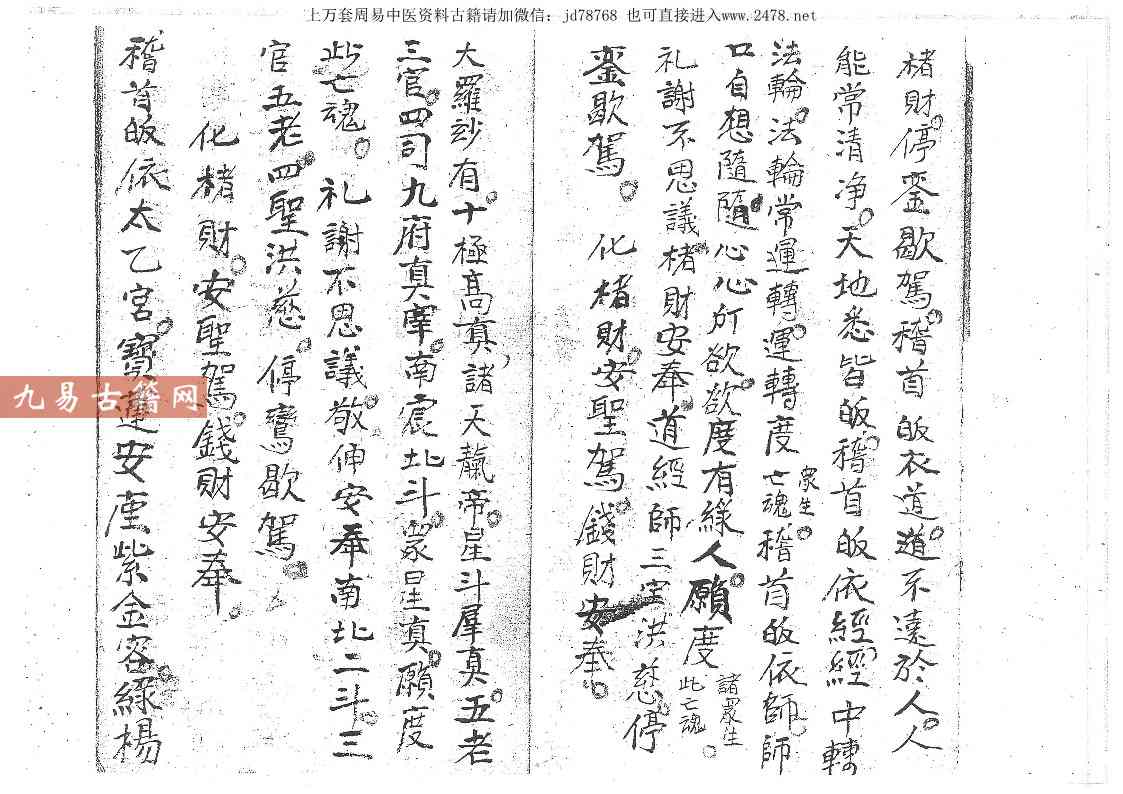 上万套周易中医资料古籍请加微信：jd78768 也可直接进入www.2478.net
楮財。停銮歇駕。稽首皈衣道。道不遠於人。人
能常清净。天地悉皆皈。稽首皈依經。經中轉
法輪。法輪常運轉。運轉度众生亡魂。稽首皈依師。師
口自想隨。隨心心所欲。欲度有緣人。願度諸眾生此亡魂。
礼謝不思議。楮財安奉。道經師三宝洪慈。停
銮歇駕。化楮財。安聖駕。錢財安奉。
大羅玅有。十極高真，諸天靝帝。星斗羣真。五老
三官。四司九府真宰。南宸北斗。眾星真。願度
此亡魂。礼謝不思議。敬伸安奉南北二斗三
官五老。四聖洪慈。停鸞歇駕。
化楮財。安聖駕。錢財安奉。
稽首皈依太乙宮。寶蓮安座紫金容。綠楊
九易古籍网